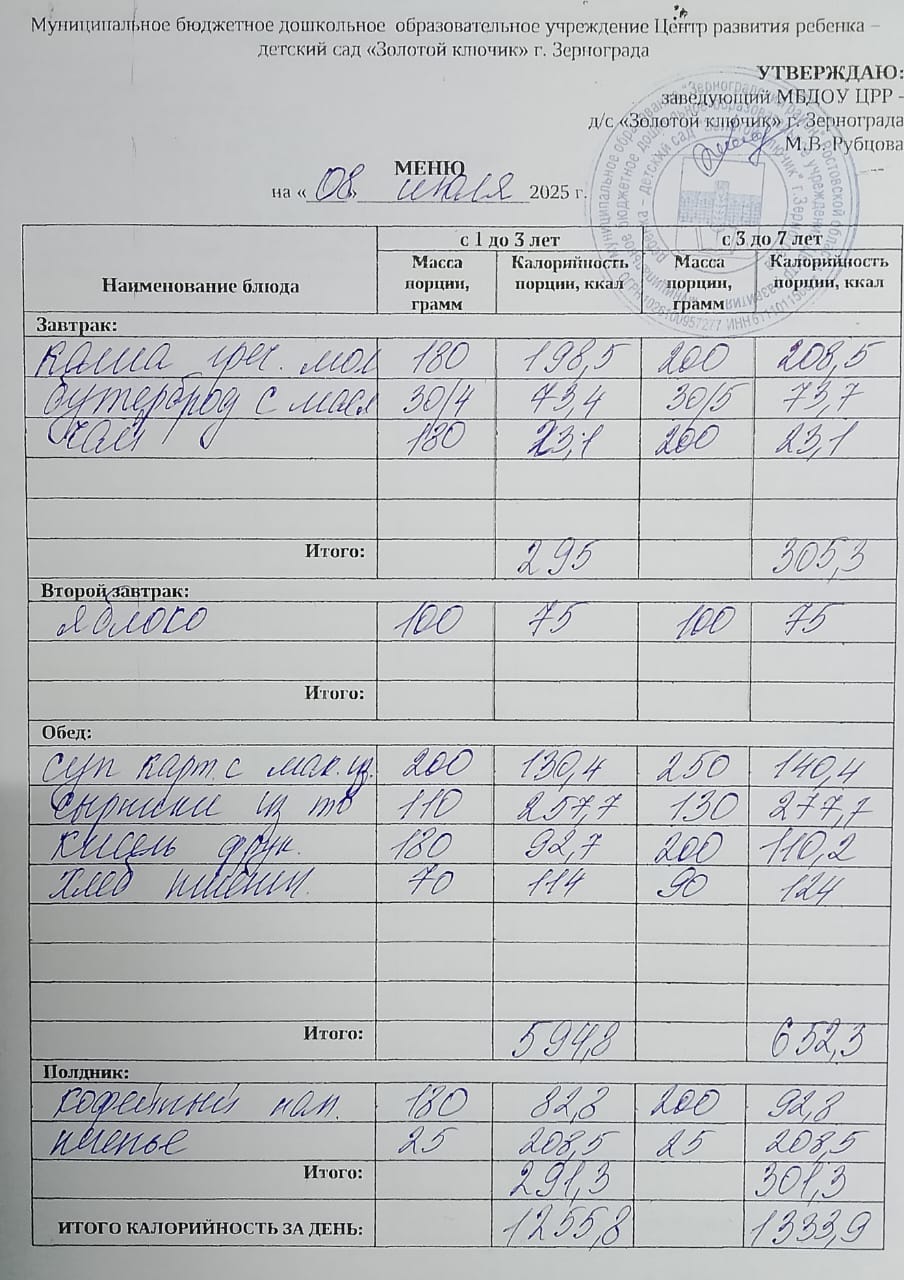 Муниципальное бюджетное дошкольное образовательное учреждение Центр развития ребенка –
детский сад «Золотой ключик» г. Зернограда
УТВЕРЖДАЮ:
заведующий МБДОУ ЦРР -
д/с «Золотой ключик» г. Зернограда
М.В. Рубцова
МЕНЮ
на « 08 июля 2025 г.
Наименование блюда с 1 до 3 лет с 3 до 7 лет
Масса порции, грамм Калорийность порции, ккал Масса порции, грамм Калорийность порции, ккал
Завтрак:
каша греч. мол 180 198,5 200 208,5
бутерброд с масл 30/4 73,4 30/5 73,7
чай 180 23,1 200 23,1
Итого: 295 305,3
Второй завтрак:
яблоко 100 75 100 75
Итого:
Обед:
суп карт. с мак. из. 200 130,4 250 140,4
сырники из тв 110 257,7 130 277,7
кисель фрук. 180 92,7 200 110,2
хлеб пшенич. 70 114 90 124
Итого: 594,8 652,3
Полдник:
кофейный нап. 180 82,8 200 92,8
печенье 25 208,5 25 208,5
Итого: 291,3 301,3
ИТОГО КАЛОРИЙНОСТЬ ЗА ДЕНЬ: 1255,8 1333,9